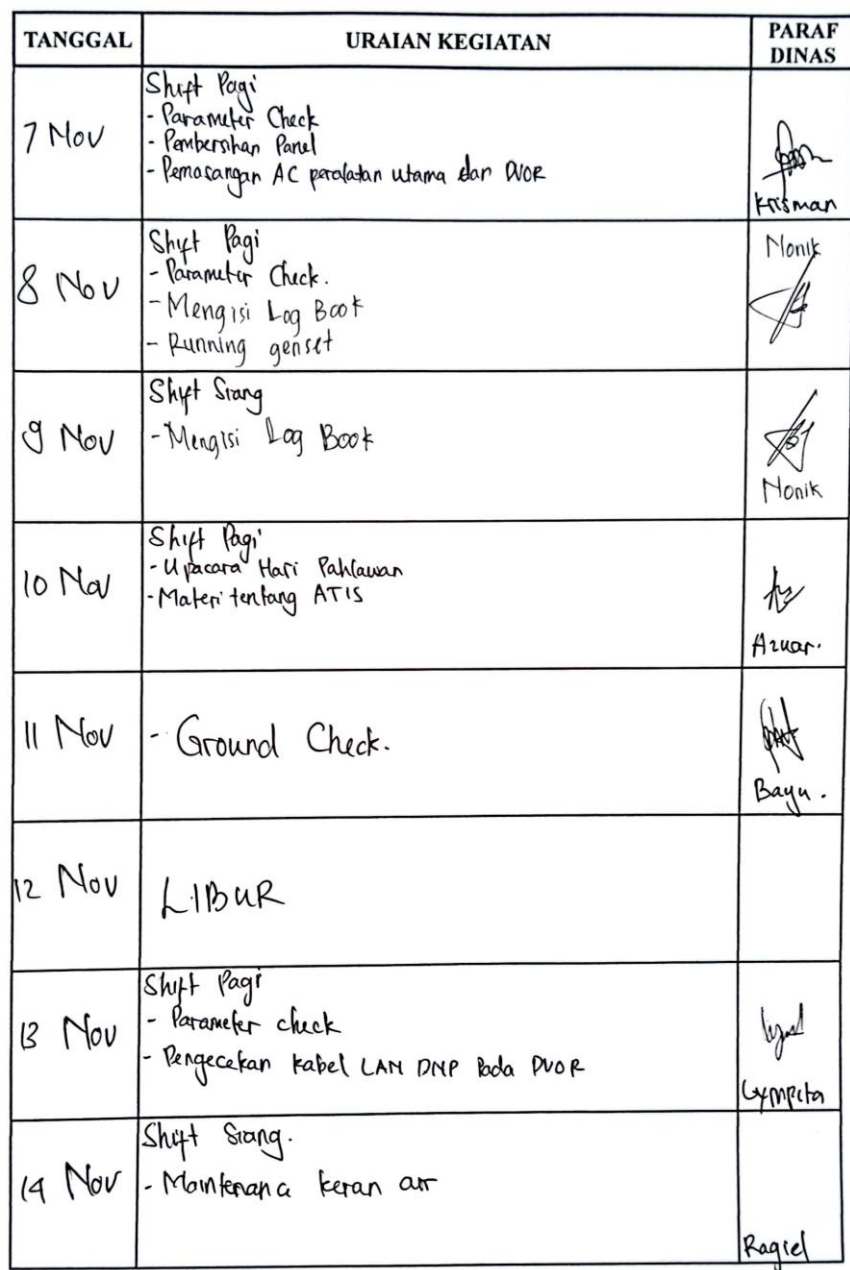 TANGGAL URAIAN KEGIATAN PARAF DINAS
7 Nov
Shift Pagi
- Parameter Check
- Pembersihan Panel
- Pemasangan AC peralatan utama dan DVOR
Krisman
8 Nov
Shift Pagi
- Parameter Check.
- Mengisi Log Book
- Running genset
Monik
9 Nov
Shift Siang
- Mengisi Log Book
Monik
10 Nov
Shift Pagi
- Upacara Hari Pahlawan
- Materi tentang ATIS
Azuar.
11 Nov
- Ground Check.
Bayu.
12 Nov
LIBUR
13 Nov
Shift Pagi
- Parameter check
- Pengecekan kabel LAN DNP Pada DVOR
14 Nov
Shift Siang.
- Maintenance keran air
Ragiel